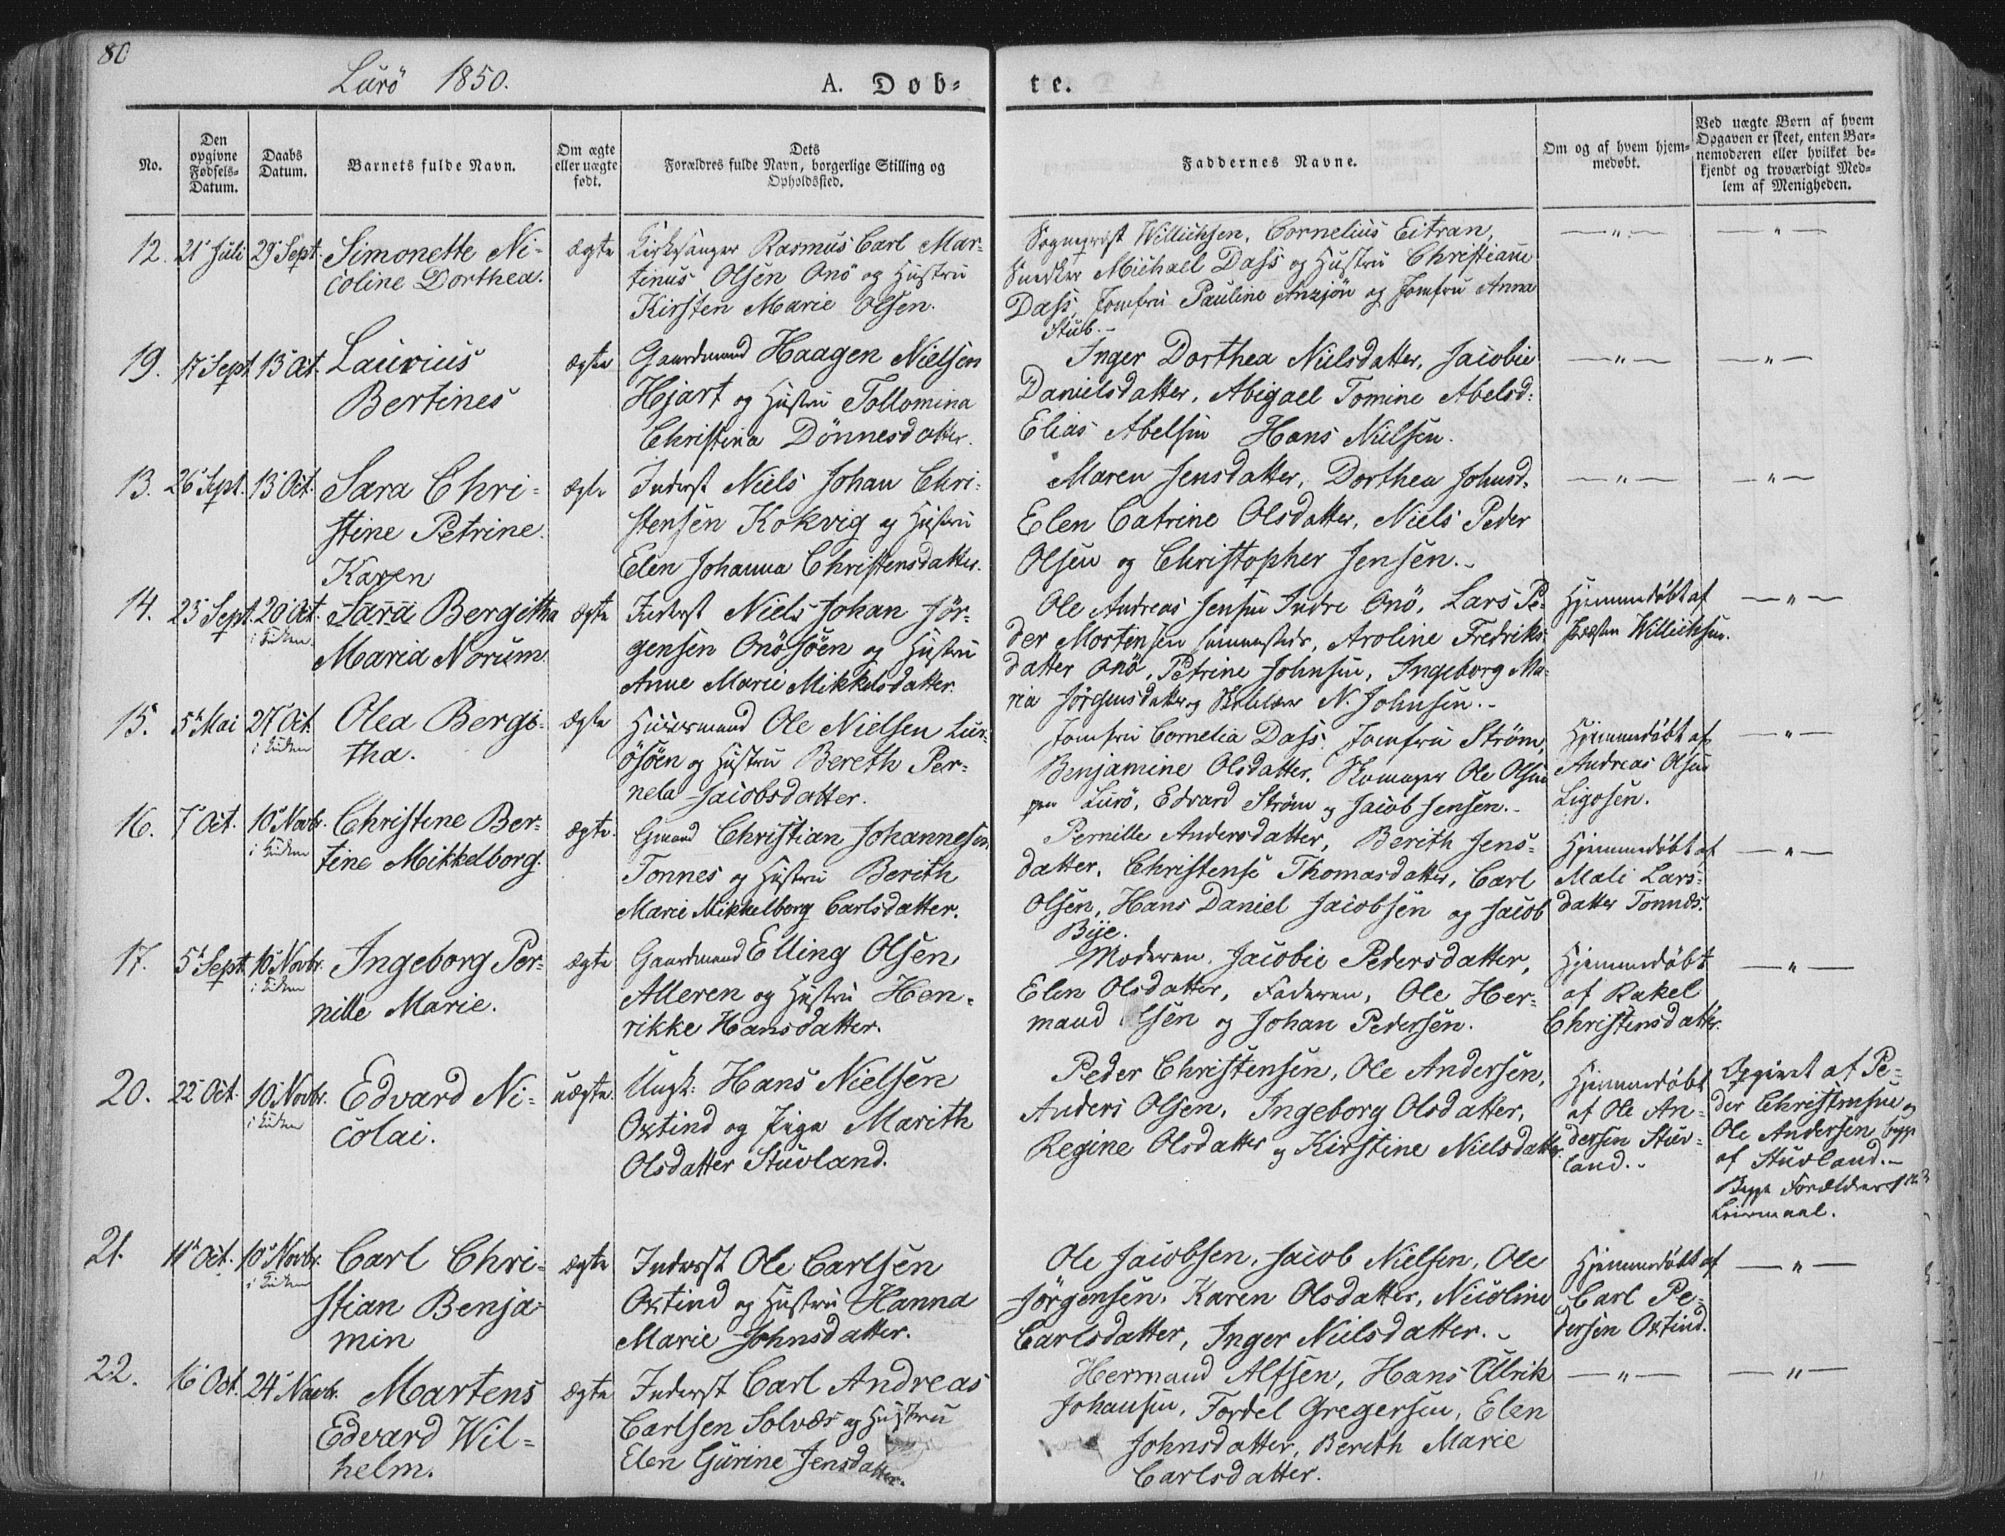 80
Lurö 1850.
A. Døb-
te.
No.
Den opgivne Fødsels-Datum.
Daabs Datum.
Barnets fulde Navn.
Om ægte eller uægte født.
Dets Forældres fulde Navn, borgerlige Stilling og Opholdssted.
Faddernes Navne.
Om og af hvem hjem-medøbt.
Ved uægte Børn af hvem Opgaven er skeet, enten Bar-nemoderen eller hvilket be-kjendt og troværdigt Med-lem af Menigheden.
12. 21 Juli 29 Sept. Simonette Ni- ægte Kirkesanger Rasmus Carl Mar-
coline Dorthea. tinus Olsen Onö og Hustru
Kirsten Marie Olsen.
Sogneprest Willichsen, Cornelius Eitran,
Snedker Michael Dass og Hustru Christiane
Dass, Jomfru Pauline Anzjön og Jomfru Anna
Stub.-
—"— —"—
19. 17 Sept 13 Oct. Laurius ægte Gaardmand Haagen Nielsen
Bertines Hjart og Hustru Tollomina
Christina Dönnesdatter.
Inger Dorthea Nielsdatter, Jacobie
Danielsdatter, Abigael Tomine Abelsd:
Elias Abelsen Hans Nielsen.
—"— —"—
13. 26 Sept. 13 Oct. Sara Chri- ægte Inderst Niels Johan Chri-
stine Petrine stensen Kokvig og Hustru
Karen Elen Johanna Christensdatter.
Maren Jensdatter, Dorthea Johnsd.
Elen Catrine Olsdatter, Niels Peder
Olsen og Christopher Jensen.-
—"— —"—
14. 25 Sept. 20 Oct. Sara Bergitha ægte Inderst Niels Johan Jör-
i Kirken Maria Norum gensen Onösöen og Hustru
Anne Marie Mikkelsdatter.
Ole Andreas Jensen Indre Onö, Lars Pe-
der Mortensen sammesteds, Aroline Fredriks-
datter Onö, Petrine Johnsen, Ingeborg Ma-
ria Jörgensdatter og N. Johnsen.-
Hjemmedøbt af
Præsten Willichsen.
—"—
15. 5 Mai 27 Oct. Olea Bergi- ægte Huusmand Ole Nielsen Lur-
i Kirken tha. ösöen og Hustru Bereth Per-
nela Jacobsdatter.
Jomfru Cornelia Dass. Jomfru Ström,
Benjamine Olsdatter. Skomager Ole Olsen
Lurö, Edvard Ström og Jacob Jensen.-
Hjemmedøbt af
Andreas Olsen
Ligosen.
—"—
16. 7 Oct. 10 Novbr. Christine Ber- ægte. Gmand Christian Johannesen
i Kirken tine Mikkelborg. Tonnes og Hustru Berith
Marie Mikkelborg Carlsdatter.
Pernille Andersdatter, Berith Jens-
datter, Christense Thomasdatter, Carl
Olsen, Hans Daniel Jacobsen og Jacob
Bye.
Hjemmedøbt af
Mali Lars-
datter Tonnes.
—"—
17. 5 Sept 10 Novbr. Ingeborg Per- ægte Gaardmand Elling Olsen
i Kirken nille Marie. Alleren og Hustru Hen-
rikke Hansdatter.
Moderen, Jacobie Pedersdatter,
Elen Olsdatter, Faderen, Ole Her-
mand Olsen og Johan Pedersen.
Hjemmedøbt
af Rakel
Christensdatter.
—"—
20. 22 Oct. 10 Novbr. Edvard Ni- uægte. Ungk: Hans Nielsen
i Kirken colai. Oxtind og Pige Marith
Olsdatter Stuvland.
Peder Christensen, Ole Andersen,
Anders Olsen, Ingeborg Olsdatter,
Regine Olsdatter og Kirstine Nielsdatter.
Hjemmedøbt
af Ole An-
dersen Stuv-
land.-
Opgivet af Pe-
der Christensen og
Ole Andersen begge
af Stuvland.-
Begge Forældres 1ste
Leiermaal.
21. 11 Oct. 10 Novbr. Carl Chri- ægte Inderst Ole Carlsen
i Kirken stian Benja- Oxtind og Hustru Hanna
min Marie Johnsdatter.
Ole Jacobsen, Jacob Nielsen, Ole
Jörgensen, Karen Olsdatter, Nicoline
Carlsdatter, Inger Nielsdatter.-
Hjemmedøbt af
Carl Pe-
dersen Oxtind.
—"—
22. 16 Oct. 24 Novbr. Martens ægte Inderst Carl Andreas
Edvard Wil- Carlsen Solvær og Hustru
helm. Elen Gurine Jensdatter.
Hermand Alfsen, Hans Ulrik
Johansen, Fordel Gregersen, Elen
Johnsdatter, Bereth Marie
Carlsdatter.
—"— —"—